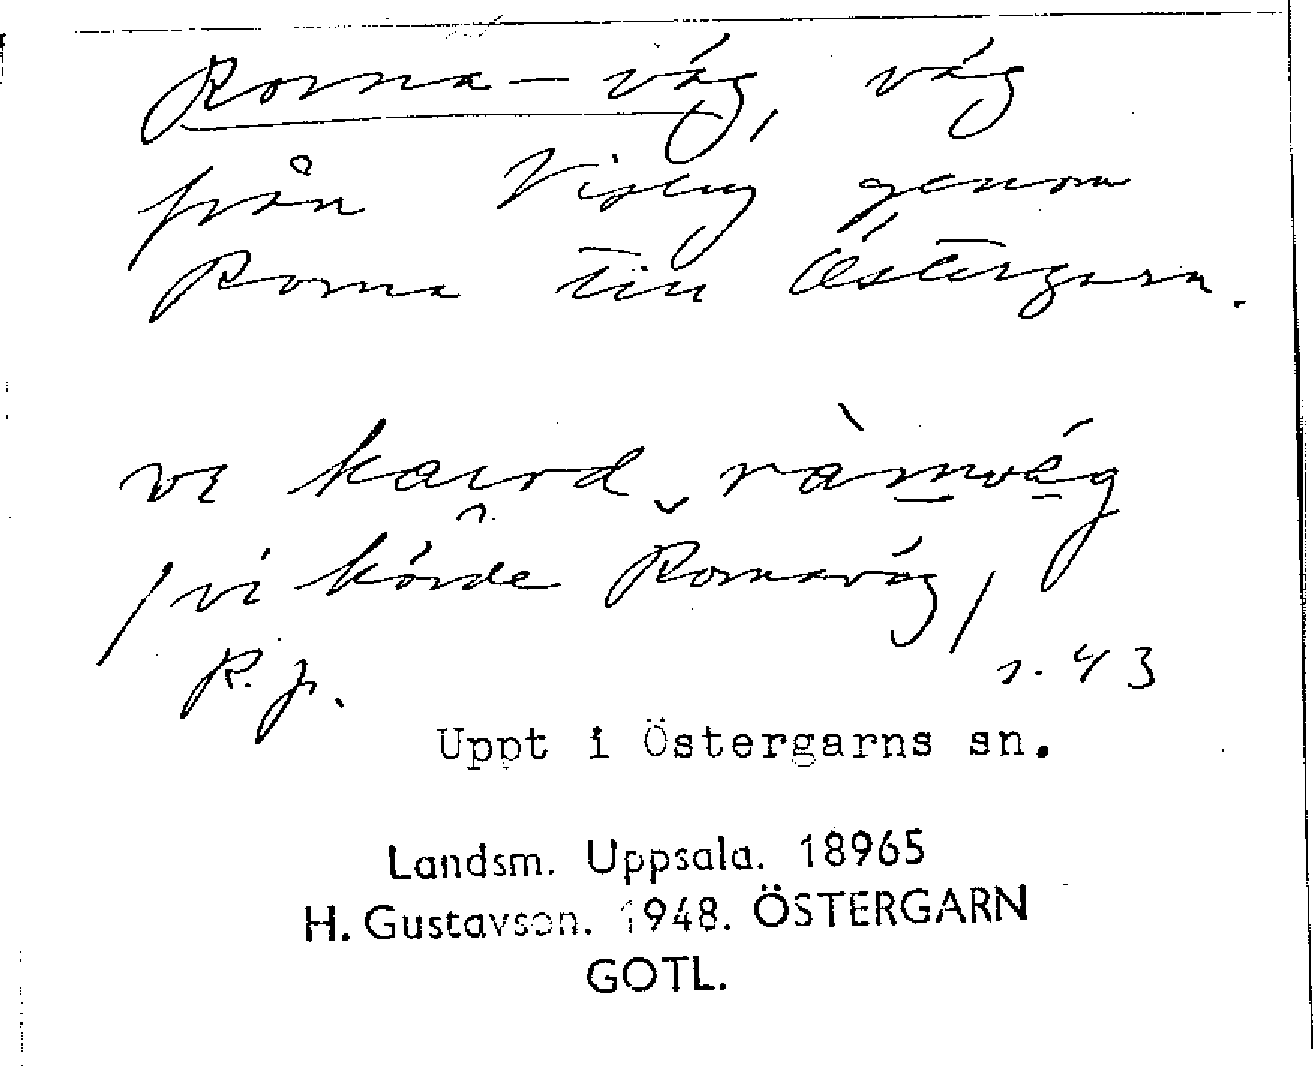 Roma-väg, väg
från Visby genom
Roma till Östergarn.
vi kaurd ràmvég
/vi körde Romaväg/
R.J. s. 43
Uppt i Östergarns sn.
Landsm. Uppsala. 18965
H. Gustavson. 1948. ÖSTERGARN
GOTL.